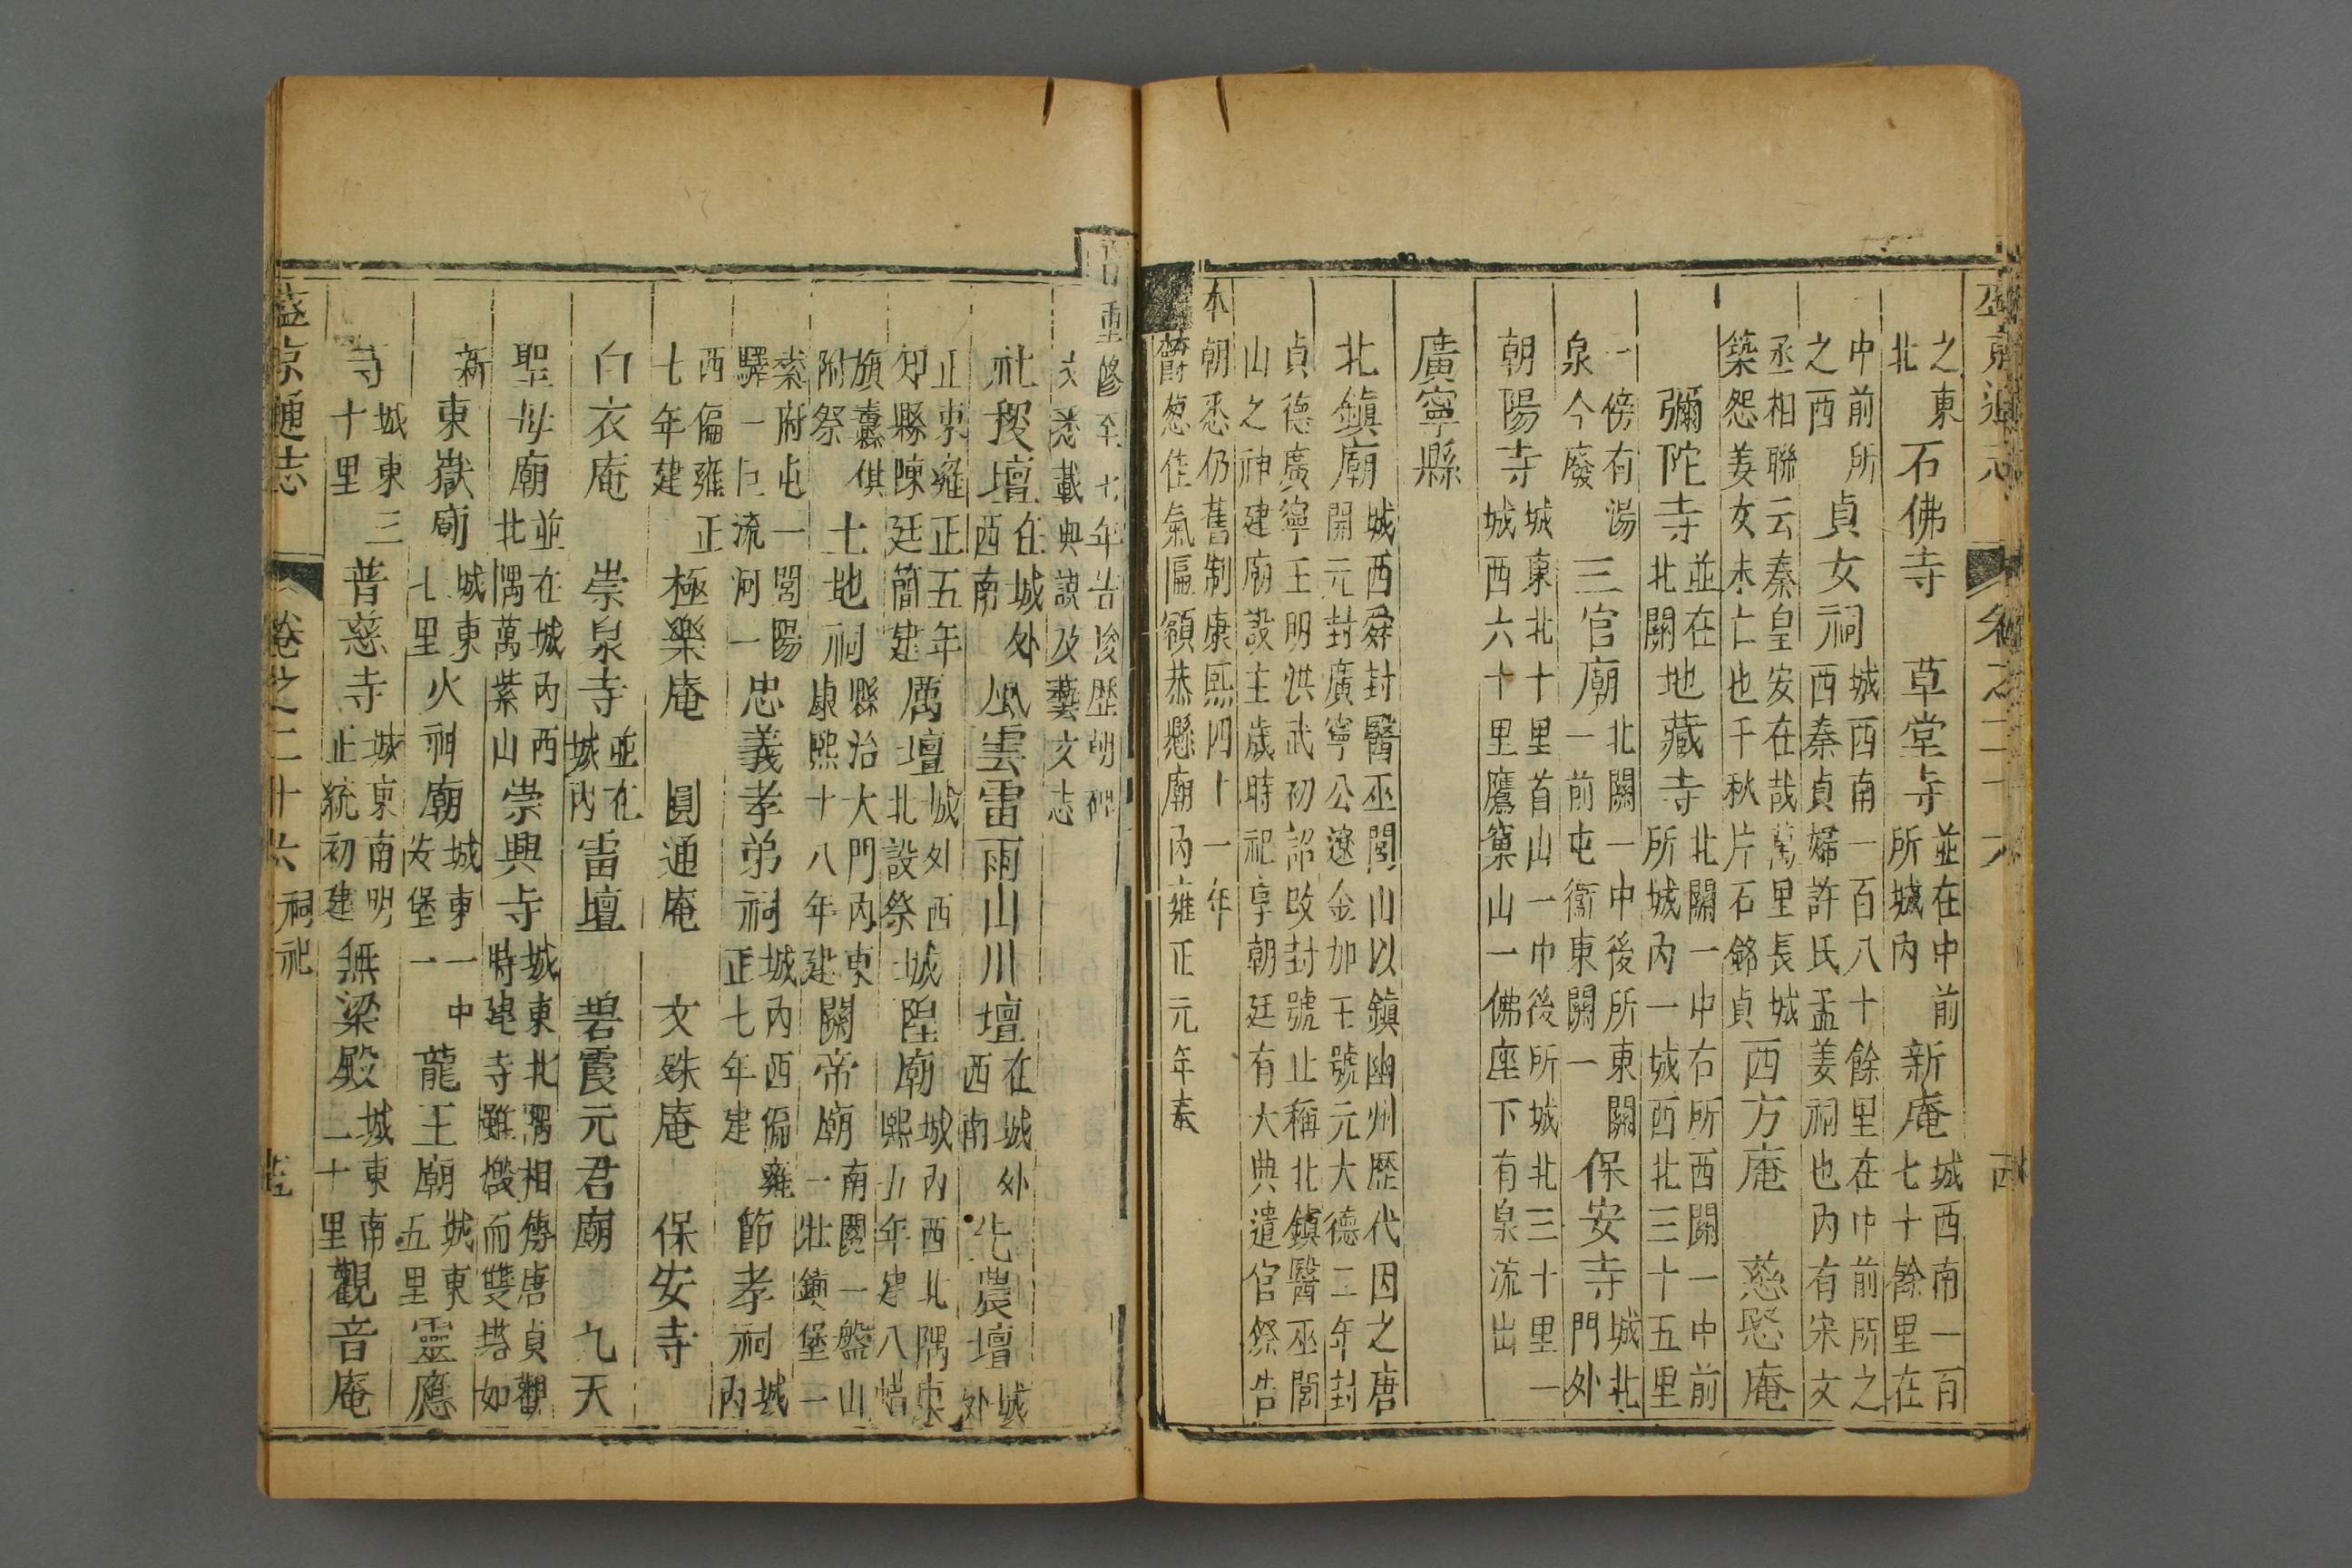 盛京通志 卷之二十六
之東北 石佛寺 草堂寺 並在中前所城内 新庵 城西南一百七十餘里在
中前所之西 貞女祠 城西南一百八十餘里在中前所之西秦貞婦許氏孟姜祠也内有宋文
丞相聯云秦皇安在哉萬里長城築怨姜女未亡也千秋片石銘貞 西方庵 慈愍庵
彌陀寺 並在北關 地藏寺 北關一中右所西關一中前所城内一城西北三十五里
一傍有湯泉今廢 三官廟 北關一中後所東關一前屯衞東關一 保安寺 城北門外
朝陽寺 城東北十里首山一中後所城北三十里一城西六十里鷹窠山一佛座下有泉流出
廣寧縣
北鎮廟 城西舜封醫巫閭山以鎮幽州歷代因之唐開元封廣寧公遼金加王號元大德二年封
貞德廣寧王明洪武初詔改封號止稱北鎮醫巫閭山之神建廟設主歲時祀享朝廷有大典遣官祭告
本朝悉仍舊制康熙四十一年
欝葱佳氣匾額恭懸廟内雍正元年奉
旨重修至七年告竣歷朝碑
文悉載典謨及藝文志
社稷壇 在城外西南 風雲雷雨山川壇 在城外西南 先農壇 城外
正東雍正五年知縣陳廷簡建 厲壇 城外西北設祭 城隍廟 城内西北隅康熙六年建八蜡
旗纛俱附祭 土地祠 縣治大門内東康熙十八年建 關帝廟 南關一盤山一壯鎮堡一
索府屯一閭陽驛一巨流河一 忠義孝弟祠 城内西偏雍正七年建 節孝祠 城内
西偏雍正七年建 極樂庵 圓通庵 文殊庵 保安寺
白衣庵 崇泉寺 並在城内 雷壇 碧霞元君廟 九天
聖母廟 並在城内西北隅萬紫山 崇興寺 城東北隅相傳唐貞觀時建寺雖燬而雙塔如
新 東嶽廟 城東七里 火神廟 城東一中安堡一 龍王廟 城東五里 靈應
寺 城東三十里 普慈寺 城東南明正統初建 無梁殿 城東南二十里 觀音庵
盛京通志 卷之二十六 祠祀